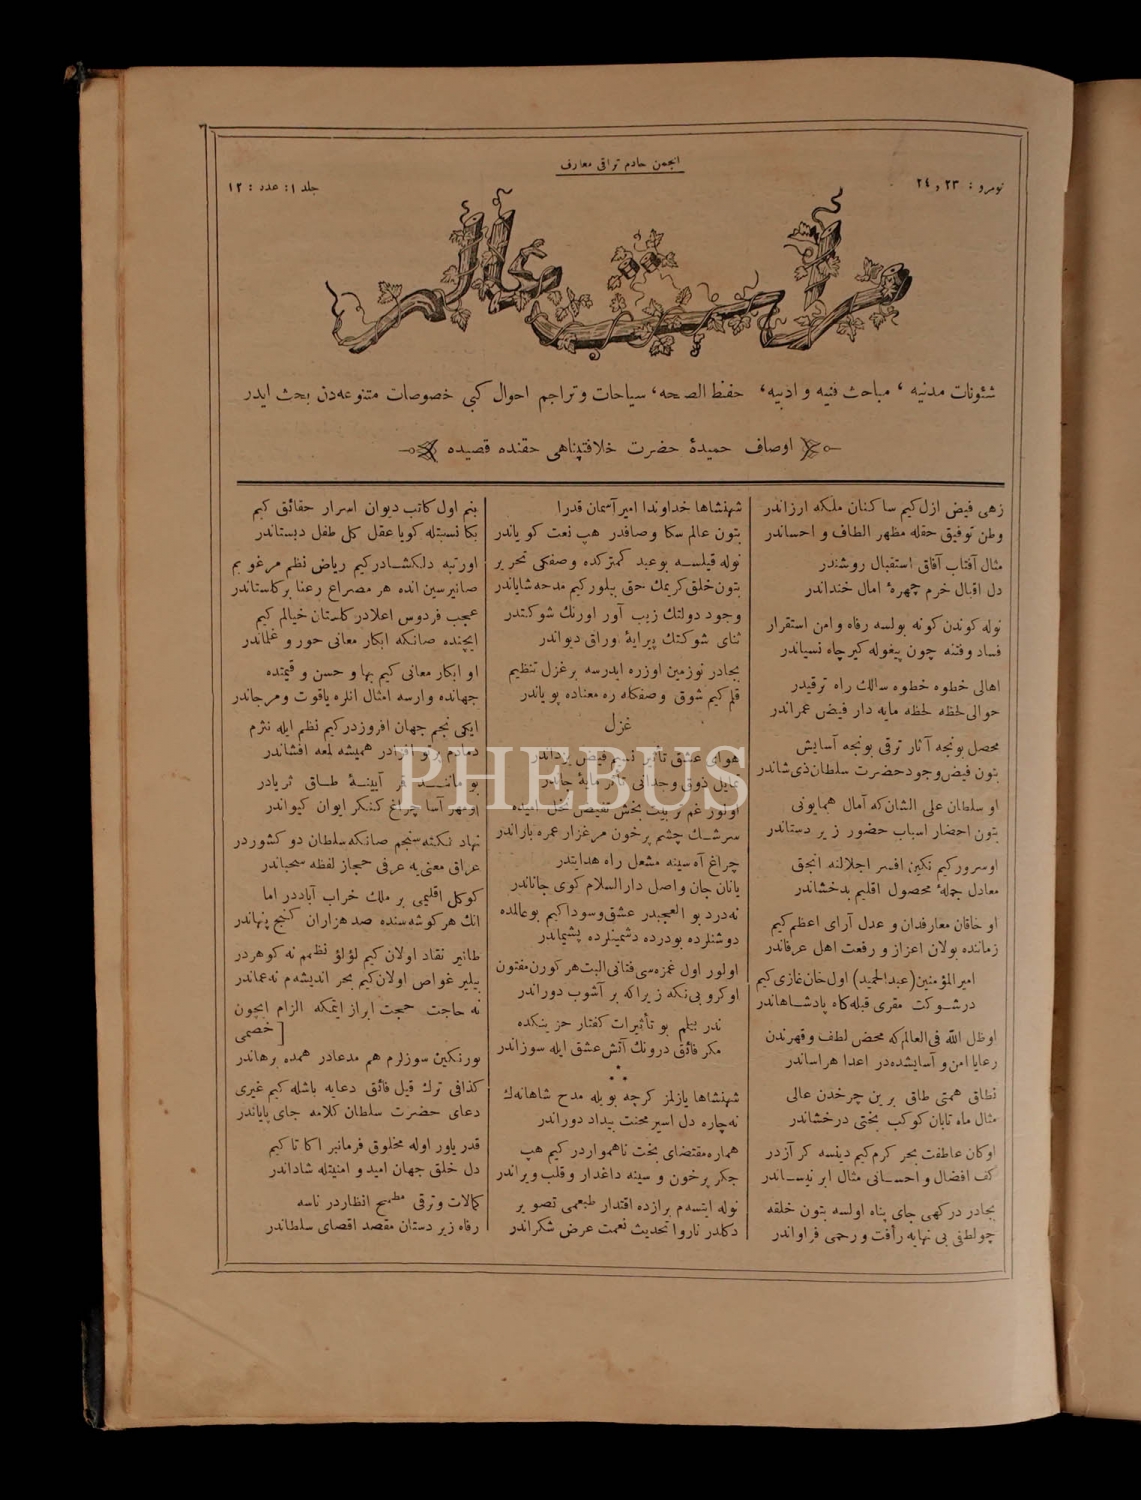 انجمن خادم ترقی معارف
نومرو : ٢٣ و ٢٤
جلد ١ : عدد : ١٢
مرآت عالم
شئونات مدنیه ، مباحث فنیه و ادبیه ، حفظ الصحه ، سیاحات و تراجم احوال کبی خصوصات متنوعه‌دن بحث ایدر
اوصاف حمیدۀ حضرت خلافتپناهی حقنده قصیده
زهی فیض ازل کیم ساکنان ملکه ارزاندر
وطن توفیق حقله مظهر الطاف و احساندر
مثال آفتاب آفاق استقبال روشندر
دل اقبال خرم چهرۀ امال خنداندر
نوله کوندن کونه بولسه رفاه و امن استقرار
فساد و فتنه چون پیغوله‌کیر چاه نسیاندر
اهالی خطوه خطوه سالك راه ترقیدر
حوالی لحظه لحظه مایه دار فیض عمراندر
محصل بونجه آثار ترقی بونجه آسایش
بتون فیض وجود حضرت سلطان ذی‌شاندر
او سلطان علی الشان که آمال همایونی
بتون احضار اسباب حضور زیر دستاندر
او سرور کیم نکین افسر اجلالنه انجق
معادل جملۀ محصول اقلیم بدخشاندر
او خاقان معارفدان و عدل آرای اعظم کیم
زمانده بولان اعزاز و رفعت اهل عرفاندر
امیر المؤمنین (عبد الحمید) اول خان غازی کیم
در شوکت مقری قبله‌کاه پادشاهاندر
او ظل الله فی العالم که محض لطف و قهرندن
رعایا امن و آسایشده‌در اعدا هراساندر
نطاق همتی طاق برین چرخدن عالی
مثال ماه تابان کوکب بختی درخشاندر
او کان عاطفت بحر کرم کیم دینسه کر آزدر
کف افضال و احسانی مثال ابر نیساندر
بجادر درکهی جای پناه اولسه بتون خلقه
چو لطفی بی نهایه رأفت و رحمی فراواندر
شهنشاها خداوندا امیر آسمان قدرا
بتون عالم سکا وصافدر هپ نعت کویاندر
نوله قیلسه بو عبد کمترکده وصفکی تحریر
بتون خلق کریمك حق بیلور کیم مدحه شایاندر
وجود دولتك زیب آور اورنك شوکتدر
ثنای شوکتك پیرایۀ اوراق دیواندر
بجادر نو زمین اوزره ایدرسه بر غزل تنظیم
قلم کیم شوق وصفکله ره معناده پویاندر
غزل
هوای عشق تأثیر نسیم فیض یزداندر
سرشك چشم پرخون مرغزار عمره باراندر
چراغ آه سینه مشعل راه هدایتدر
یانان جان واصل دار السلام کوی جاناندر
نه درد بو العجبدر عشق و سودا کیم بو عالمده
دوشنلرده بودرده دشمینلرده پشیماندر
اولور اول غمزه‌سی فتانی البت هر کورن مفتون
او کروبی نکه زیرا که بر آشوب دوراندر
ندر بیلم بو تأثیرات کفتار حزینکده
مکر فائق درونك آتش عشق ایله سوزاندر
شهنشاها یازلمز کرچه بویله مدح شاهانه‌ك
نه چاره دل اسیر محنت بیداد دوراندر
هماره مقتضای بخت ناهمواردر کیم هپ
جکر پرخون و سینه داغدار و قلب ویراندر
نوله ایتسه‌م برازده اقتدار طبعمی تصویر
دکلدر ناروا تحدیث نعمت عرض شکراندر
بنم اول کاتب دیوان اسرار حقائق کیم
بکا نسبتله کویا عقل کل طفل دبستاندر
او رتبه دلکشادر کیم ریاض نظم مرغوبم
صانیرسین انده هر مصراع رعنا بر کلستاندر
عجب فردوس اعلادر کلستان خیالم کیم
ایچنده صانکه ابکار معانی حور و غلماندر
او ابکار معانی کیم بها و حسن و قیمتده
جهانده وارسه امثال انلره یاقوت و مرجاندر
ایکی نجم جهان افروزدر کیم نظم ایله نثرم
دمادم پرتو افزادر همیشه لمعه افشاندر
نهاد نکته سنجم صانکه سلطان دو کشوردر
عراق معنی‌یه عرفی حجاز لفظه سحباندر
کوکل اقلیمی بر ملك خراب آباددر اما
انك هر کوشه‌سنده صد هزاران کنج پنهاندر
طانیر نقاد اولان کیم لؤلؤ نظمم نه کوهردر
بیلیر غواص اولان کیم بحر اندیشه‌م نه عماندر
نه حاجت حجت ابراز ایتمکه الزام ایچون
[ خصمی
بو رنکین سوزلرم هم مدعادر همده برهاندر
کذافی ترك قیل فائق دعایه باشله کیم غیری
دعای حضرت سلطان کلامه جای پایاندر
قدر یاور اوله مخلوق فرمانبر اکا تا کیم
دل خلق جهان امید و امنیتله شاداندر
کمالات و ترقی مطمح انظاردر ناسه
رفاه زیر دستان مقصد اقصای سلطاندر
PHEBUS